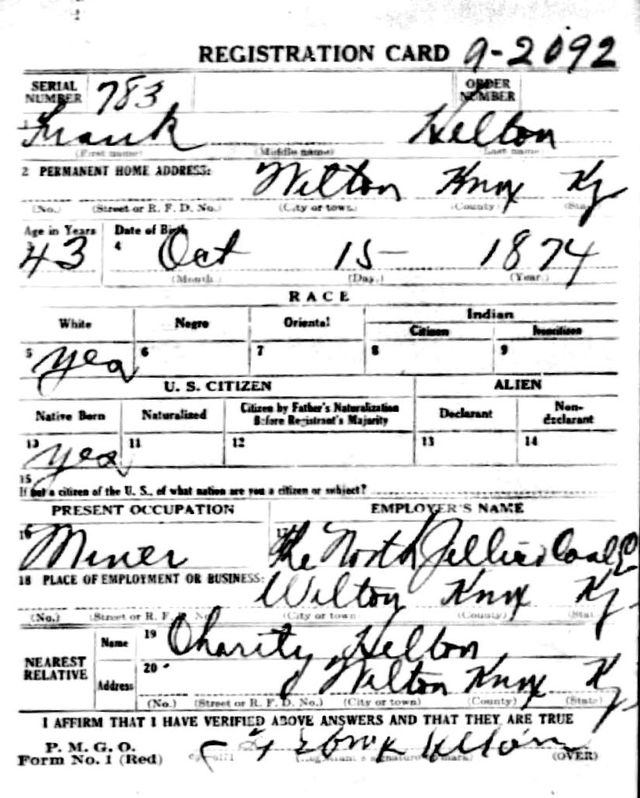 REGISTRATION CARD 9-2092
SERIAL NUMBER 783 ORDER NUMBER
1 Frank Helton
(First name) (Middle name) Last name
2 PERMANENT HOME ADDRESS: Wilton Knox Ky
(No.) (Street or R. F. D. No.) (City or town) (County) (State)
Age in Years Date of Birth
3 43 4 Oct 15 - 1874
(Month) (Day) (Year)
RACE
White Negro Oriental Indian
Citizen Noncitizen
5 yes 6 7 8 9
U. S. CITIZEN ALIEN
Native Born Naturalized Citizen by Father's Naturalization Before Registrant's Majority Declarant Non-declarant
10 yes 11 12 13 14
15
If not a citizen of the U. S., of what nation are you a citizen or subject?
PRESENT OCCUPATION EMPLOYER'S NAME
16 Miner 17 The North Jellico Coal Co
18 PLACE OF EMPLOYMENT OR BUSINESS: Wilton Knox Ky
(No.) (Street or R. F. D. No.) (City or town) (County) (State)
NEAREST RELATIVE
Name 19 Charity Helton
Address 20 Wilton Knox Ky
(No.) (Street or R. F. D. No.) (City or town) (County) (State)
I AFFIRM THAT I HAVE VERIFIED ABOVE ANSWERS AND THAT THEY ARE TRUE
P. M. G. O.
Form No. 1 (Red) Helton (OVER)
(Registrant's signature or mark)